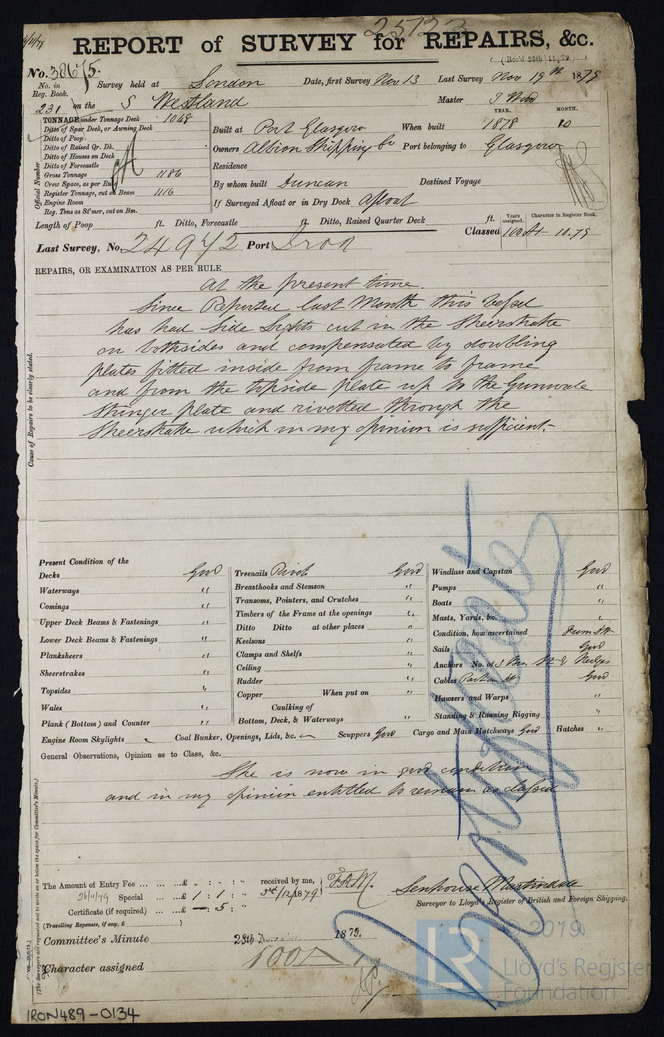 REPORT of SURVEY for REPAIRS, &c.
(Recd 25th 11/79)
No. 38675. Survey held at London Date, first Survey Nov 13 Last Survey Nov 19th 1879
No. in Reg. Book.
231 on the S Westland Master J Wood
TONNAGE under Tonnage Deck 1048
Ditto of Spar Deck, or Awning Deck
Ditto of Poop
Ditto of Raised Qr. Dk.
Ditto of Houses on Deck
Ditto of Forecastle
Gross Tonnage 1186
Crew Space, as per Rule
Register Tonnage, cut on Beam 1116
Engine Room
Reg. Tons as St'mer, cut on Bm.
Official Number
YEAR. MONTH.
Built at Port Glasgow When built 1878 10
Owners Albion Shipping Co Port belonging to Glasgow
Residence
By whom built Duncan Destined Voyage
If Surveyed Afloat or in Dry Dock Afloat
Length of Poop ft. Ditto, Forecastle ft. Ditto, Raised Quarter Deck ft.
Years assigned. Character in Register Book.
Classed 100A1 10.79
Last Survey, No. 24942 Port Iron
REPAIRS, OR EXAMINATION AS PER RULE
at the present time.
Since Reported last Month this vessel
has had Side Lights cut in the Sheerstrake
on bothsides and compensated by doubling
plates fitted inside from frame to frame
and from the topside plate up to the Gunwale
Stringer plate and rivetted through the
Sheerstrake which in my opinion is sufficient.
Cause of Repairs to be clearly stated.
Present Condition of the
Decks Good
Waterways "
Comings "
Upper Deck Beams & Fastenings "
Lower Deck Beams & Fastenings "
Planksheers "
Sheerstrakes "
Topsides "
Wales "
Plank (Bottom) and Counter "
Treenails Rivets Good
Breasthooks and Stemson "
Transoms, Pointers, and Crutches "
Timbers of the Frame at the openings "
Ditto Ditto at other places "
Keelsons "
Clamps and Shelfs "
Ceiling "
Rudder "
Copper When put on "
Caulking of
Bottom, Deck, & Waterways "
Windlass and Capstan Good
Pumps "
Boats "
Masts, Yards, &c. "
Condition, how ascertained
Sails Good
Anchors No. of
Cables Good
Hawsers and Warps "
Standing & Running Rigging "
Engine Room Skylights Coal Bunker, Openings, Lids, &c. Scuppers Good Cargo and Main Hatchways Good Hatches "
General Observations, Opinion as to Class, &c.
She is now in good condition
and in my opinion entitled to remain as classed
The Amount of Entry Fee ... £ - : - : - received by me,
26/11/79 Special ... £ 1 : 1 : - 3rd/12/1879 F.A.M.
Certificate (if required) ... £ - 5 : -
(Travelling Expenses, if any, £ )
Senhouse Martindale
Surveyor to Lloyd's Register of British and Foreign Shipping.
Committee's Minute 28th 1879.
Character assigned 100A1
© 2019
LR Lloyd's Register Foundation
IRON489-0134